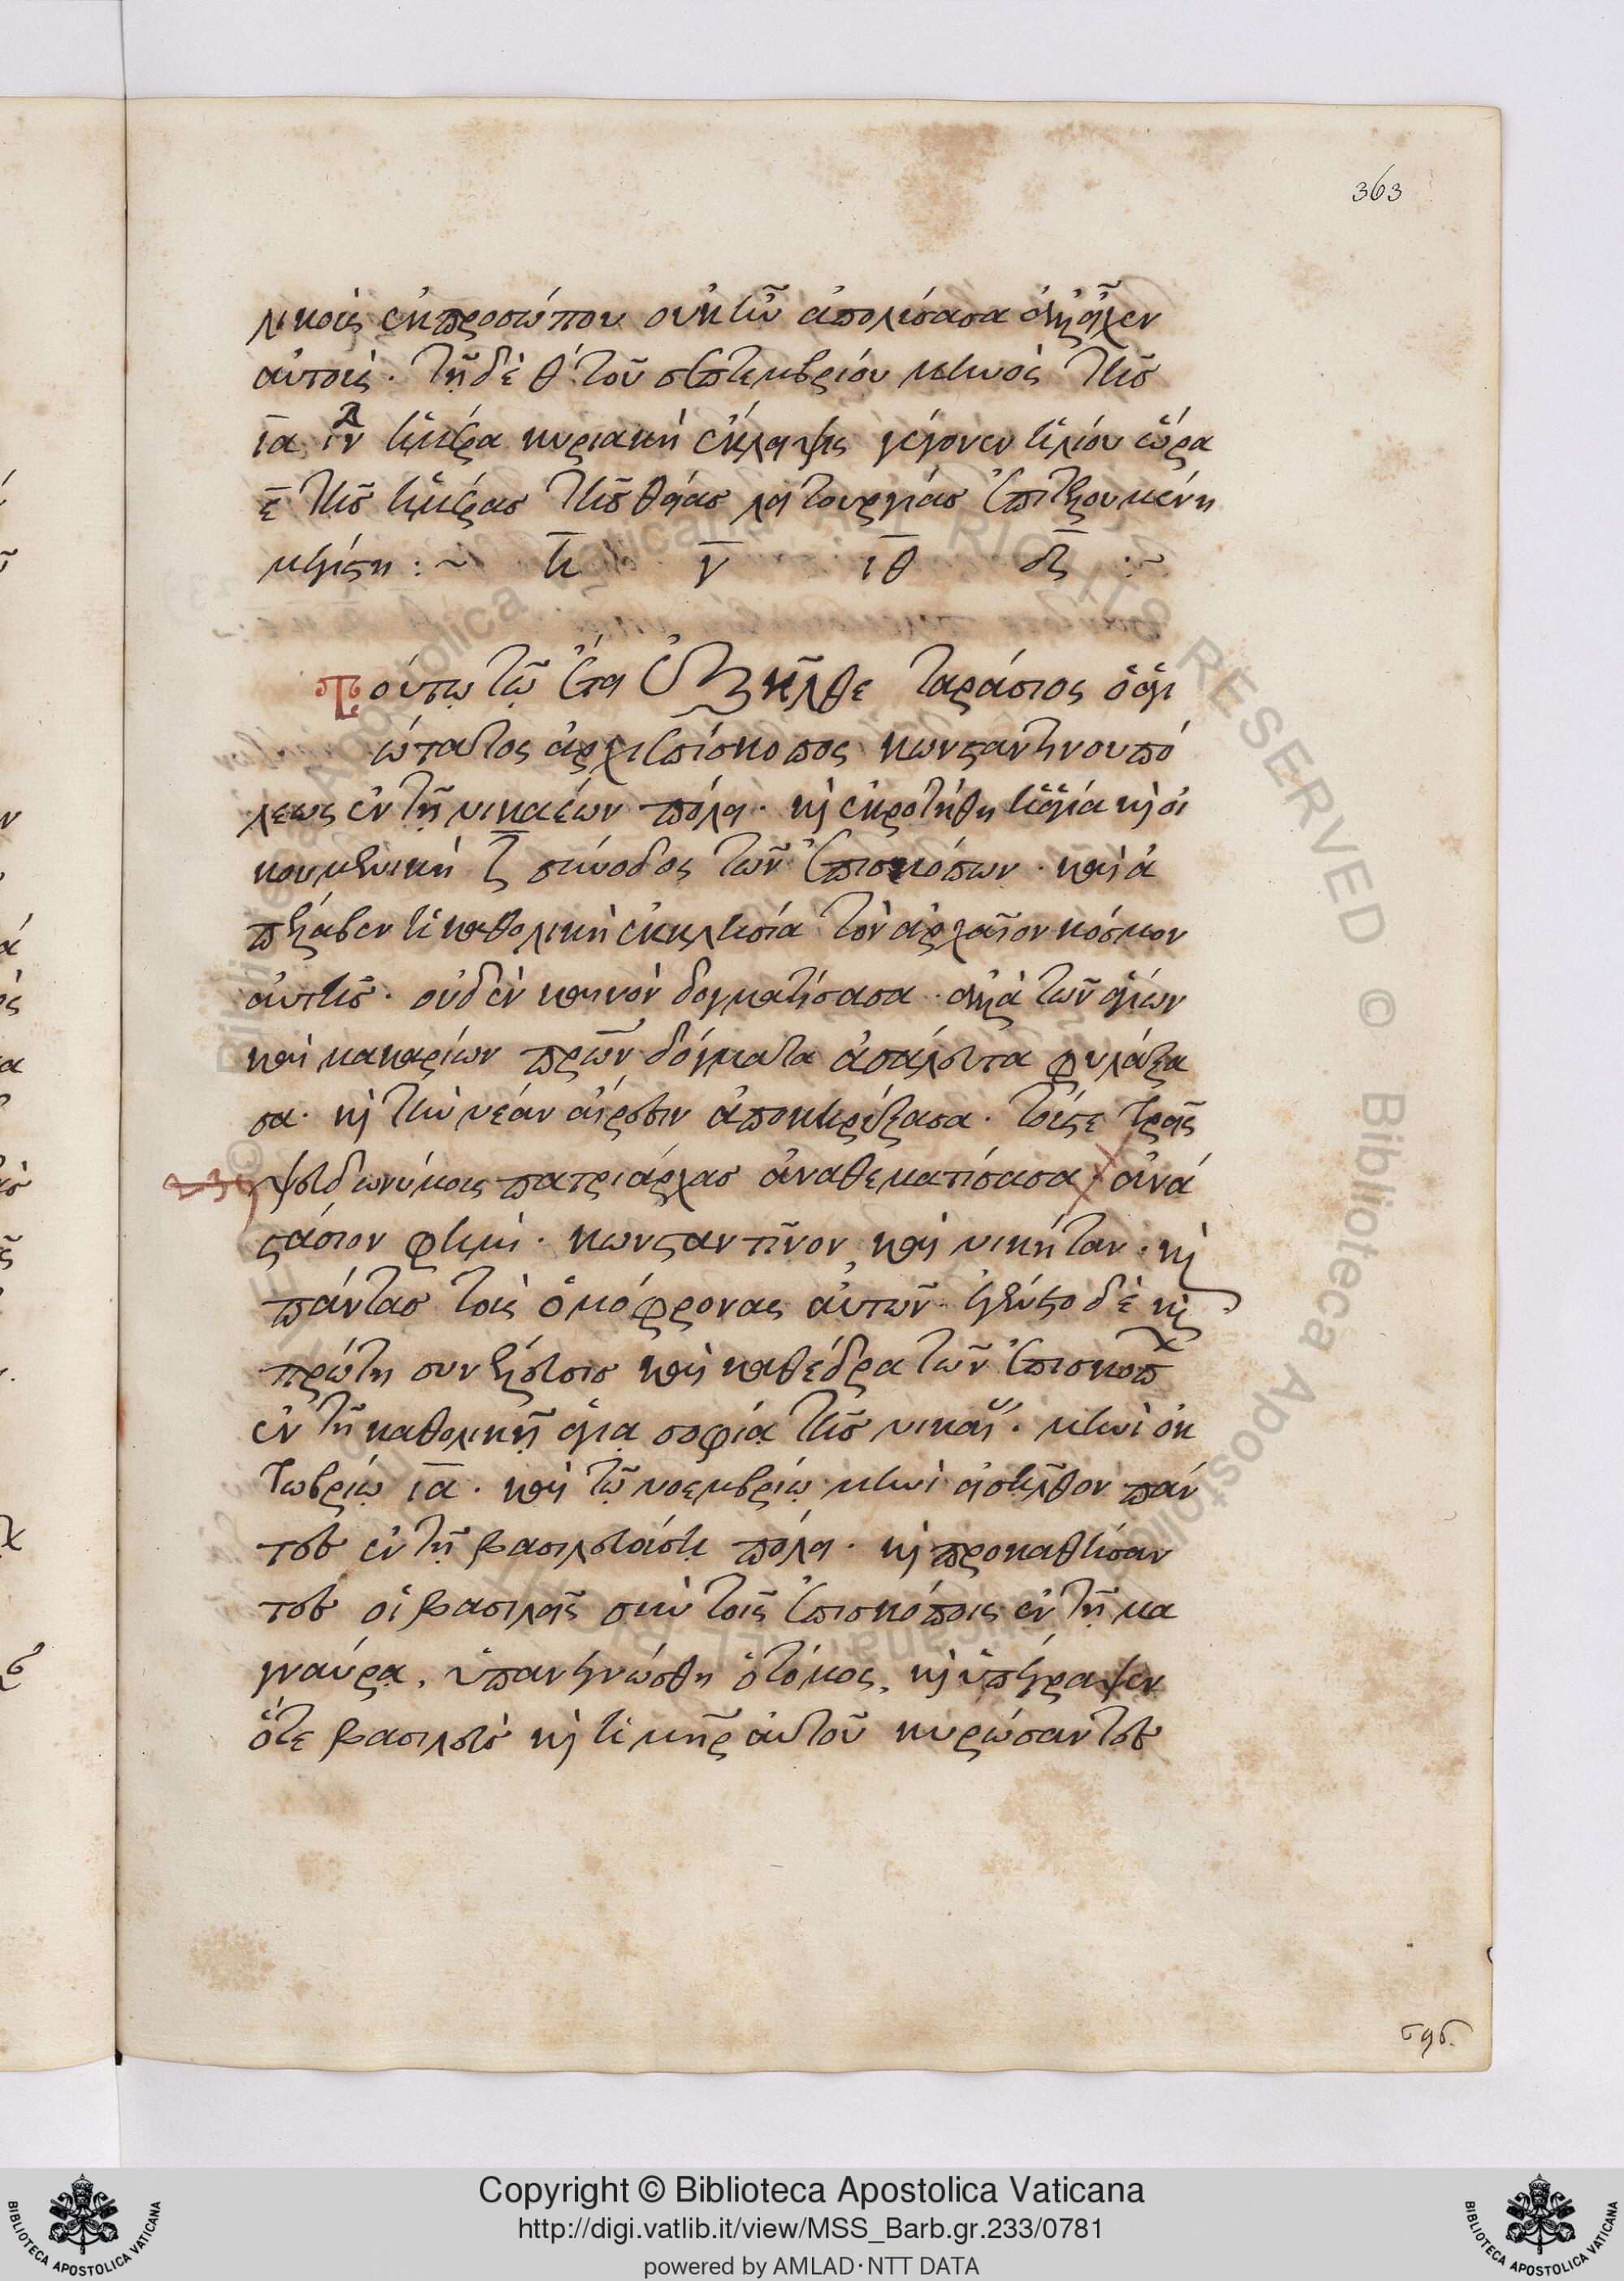 363
λικοὺς ἐκ προσώπου αὐτῶν ἀπολέσασα ἀλλήλλαχεν
αὐτούς. τῇ δὲ θ τοῦ σεπτεμβρίου μηνὸς τῆς
ια ἰν ἡμέρα κυριακὴ ἔκλειψις γέγονεν ἡλίου ὥρα
ε τῆς ἡμέρας τῆς θείας λειτουργίας ἐπιτελουμένη
μεγίστη :~ η γ ιθ δς :~
Τούτῳ τῷ ἔτει ἐξῆλθε ταράσιος ὁ ἁγι
ώτατος ἀρχιεπίσκοπος κωνσταντινουπό
λεως ἐν τῇ νικαέων πόλει. καὶ ἐκροτήθη ἡ ἁγία καὶ οἰ
κουμενικὴ ζ σύνοδος τῶν ἐπισκόπων. καὶ ἀ
πέλαβεν ἡ καθολικὴ ἐκκλησία τὸν ἀρχαῖον κόσμον
αὐτῆς. οὐδὲν καινὸν δογματίσασα. ἀλλὰ τῶν ἁγίων
καὶ μακαρίων πρων δόγματα ἀσάλευτα φυλάξα
σα. καὶ τὴν νέαν αἵρεσιν ἀποκηρύξασα. τούς τε τρεῖς
ψευδωνύμους πατριάρχας ἀναθεματίσασα ἀνα
στάσιον φημὶ. κωνσταντῖνον, καὶ νικήταν. καὶ
πάντας τοὺς ὁμόφρονας αὐτῶν. ἐγένετο δὲ καὶ
πρώτη συνέλευσις καὶ καθέδρα τῶν ἐπισκοπ
ἐν τῇ καθολικῇ ἁγία σοφία τῆς νικαί. μηνὶ ὀκ
τωβρίῳ ια. καὶ τῷ νοεμβρίῳ μηνὶ εἰσῆλθον πάν
τες ἐν τῇ βασιλευούσῃ πόλει. καὶ προκαθίσαν
τες οἱ βασιλεῖς σὺν τοῖς ἐπισκόποις ἐν τῇ μα
γναύρᾳ, ὑπανεγνώσθη ὁ τόμος, καὶ ὑπέγραψεν
ὅτε βασιλεὺς καὶ ἡ μηρ αὐτοῦ κυρώσαντες
Copyright © Biblioteca Apostolica Vaticana
http://digi.vatlib.it/view/MSS_Barb.gr.233/0781
powered by AMLAD·NTT DATA